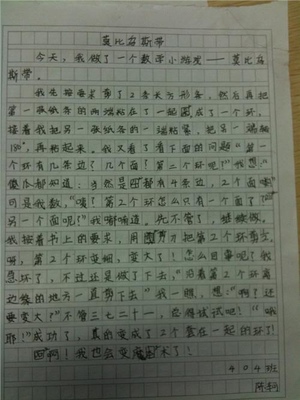 莫比乌斯带
今天,我做了一个数学小游戏——莫比乌
斯带。
我先按要求剪了2条长方形条,然后再把
第一张纸条的两端粘在了一起,成了一个环。
接着我把另一张纸条的一端粘紧,把另一端翻
180°,再粘起来。我又看了看下面的问题:“第一
个环有几条边?几个面?第二个环呢?”我想:“
傻瓜都知道,当然是都有4条边,2个面啊!
可是我数,“咦?第2个环怎么只有一个面了?
另一个面呢?”我嘟喃道。先不管了,继续做。
我按着书上的要求,用剪刀把第2个环剪开,
呀,第2个环变细,变大了!怎么回事呢?我
想坏了,不过还是做了下去,“沿着第2个环离
边缘的地方一直剪下去”我一瞧,想:“啊?还
要变大?”不管三七二十一,总得试试吧!“哦
耶!”成功了,真的变成了2个套在一起的环了!
啊!我也会变魔术了!
404班
陈轲